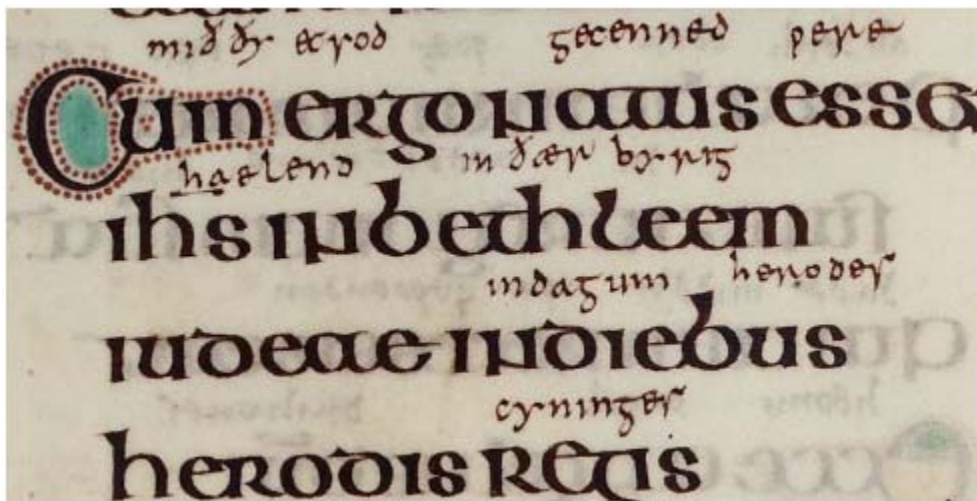 mið ðy gecenned ƿere
Cum ergo natus esset
haelend in ðær byrig
ihs in bethleem
in dagum herodes
iudeae in diebus
cyninges
herodis regis